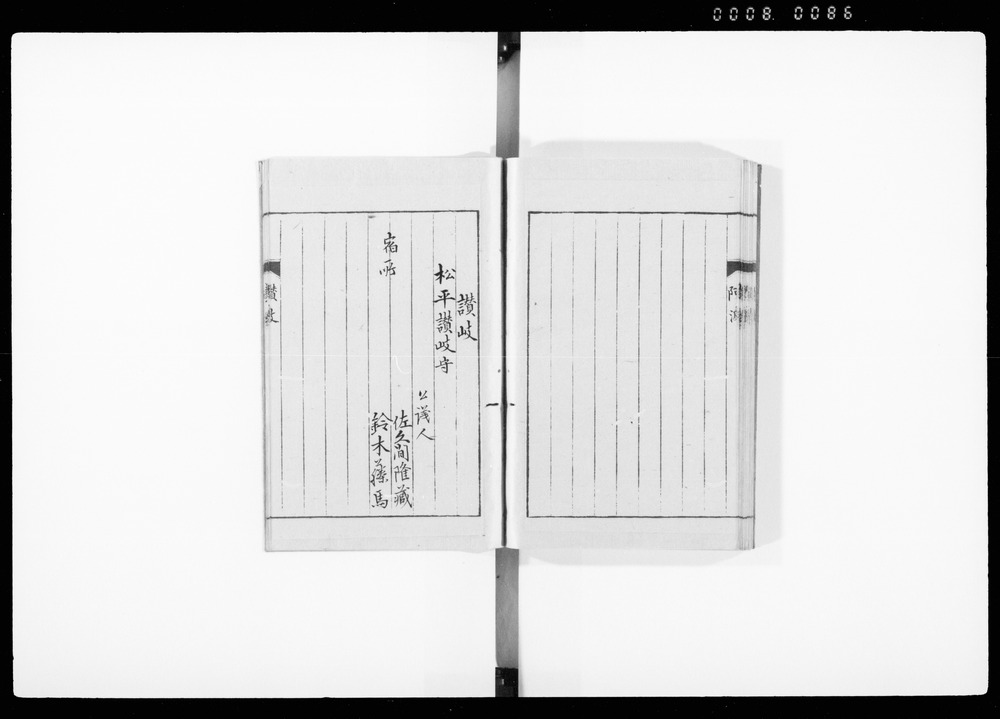 0008 0086
阿波
讃岐
松平讃岐守
公議人
佐久間隆藏
鈴木藤馬
宿所
讃岐